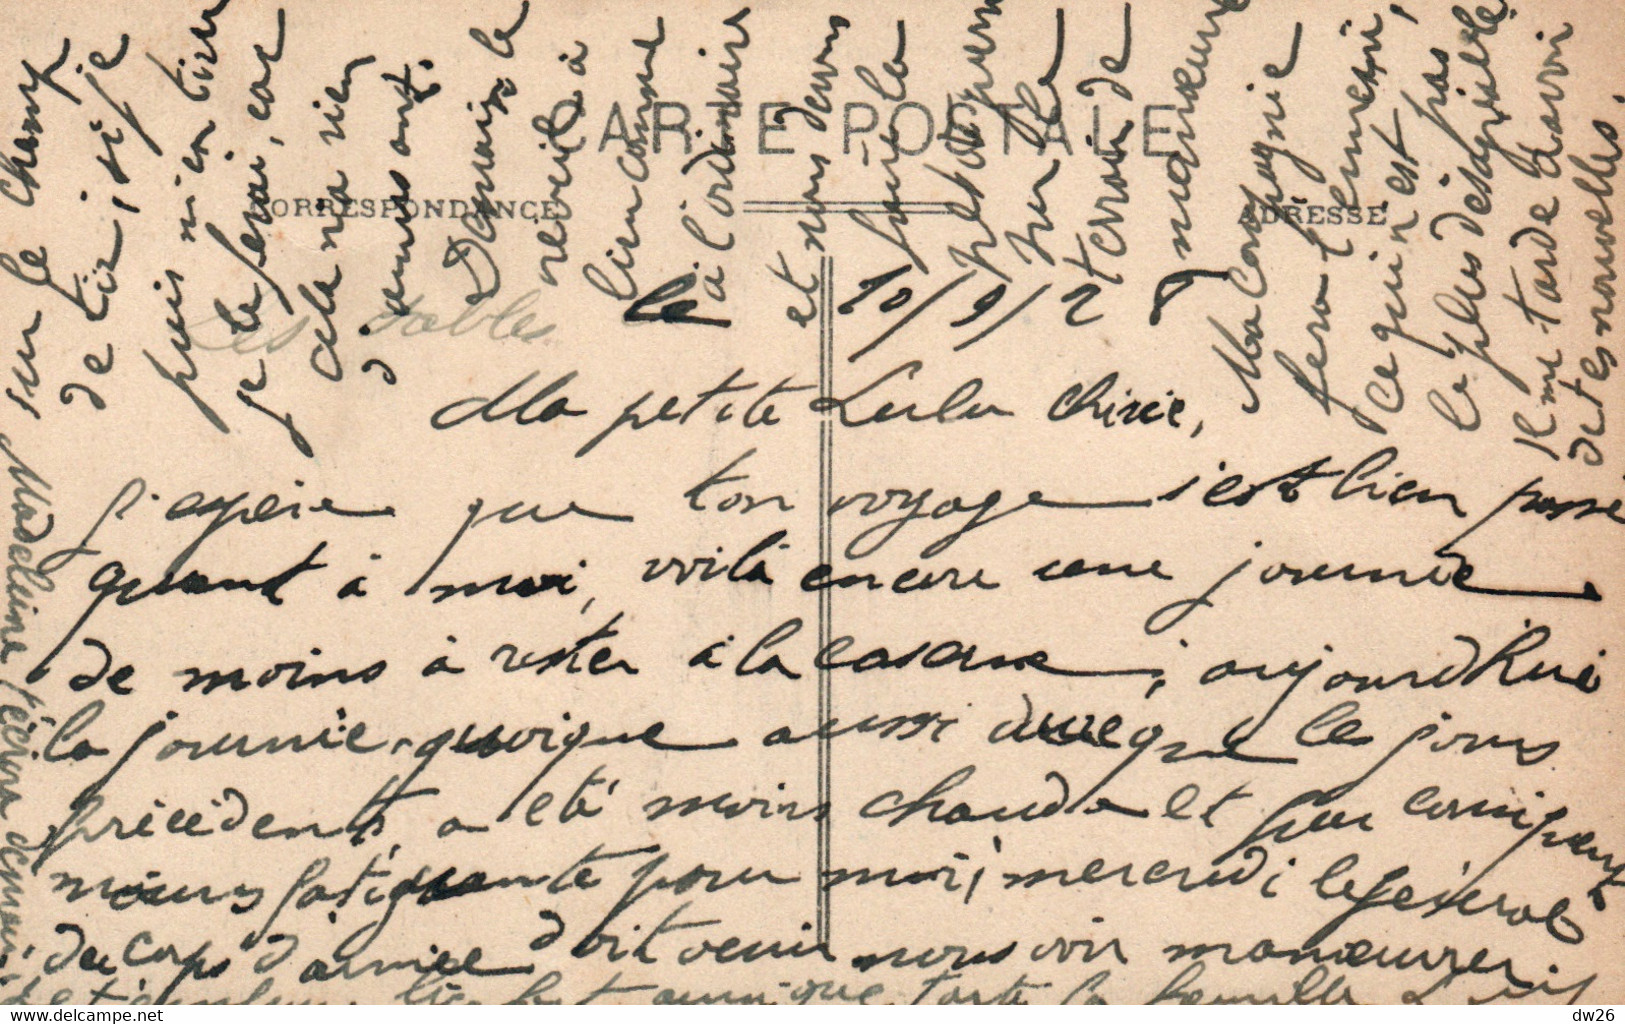 CARTE POSTALE
CORRESPONDANCE
ADRESSE
Les Sables le 10/9/2
Ma petite Lulu chérie,
j'espère que ton voyage s'est bien passé
quant à moi, voilà encore une journée
de moins à rester à la caserne; aujourd'hui
la journée, quoique aussi dure que les jours
précédents, a été moins chaude et par conséquent
moins fatigante pour moi; mercredi le général
du corps d'armée doit venir nous voir manœuvrer
sur le champ
de tir, si je
puis m'en tirer
je le ferai, car
cela n'a rien
d'amusant.
Demain le
réveil à
lieu comme
à l'ordinaire
et nous devons
faire la
sur le
terrain de
manœuvre
Ma compagnie
fera l'ennemi,
ce qui n'est pas
le plus désagréable
Il me tarde d'avoir
de tes nouvelles.
Madeleine t'écrira demain
et t'embrasse bien fort ainsi que toute la famille
dw26